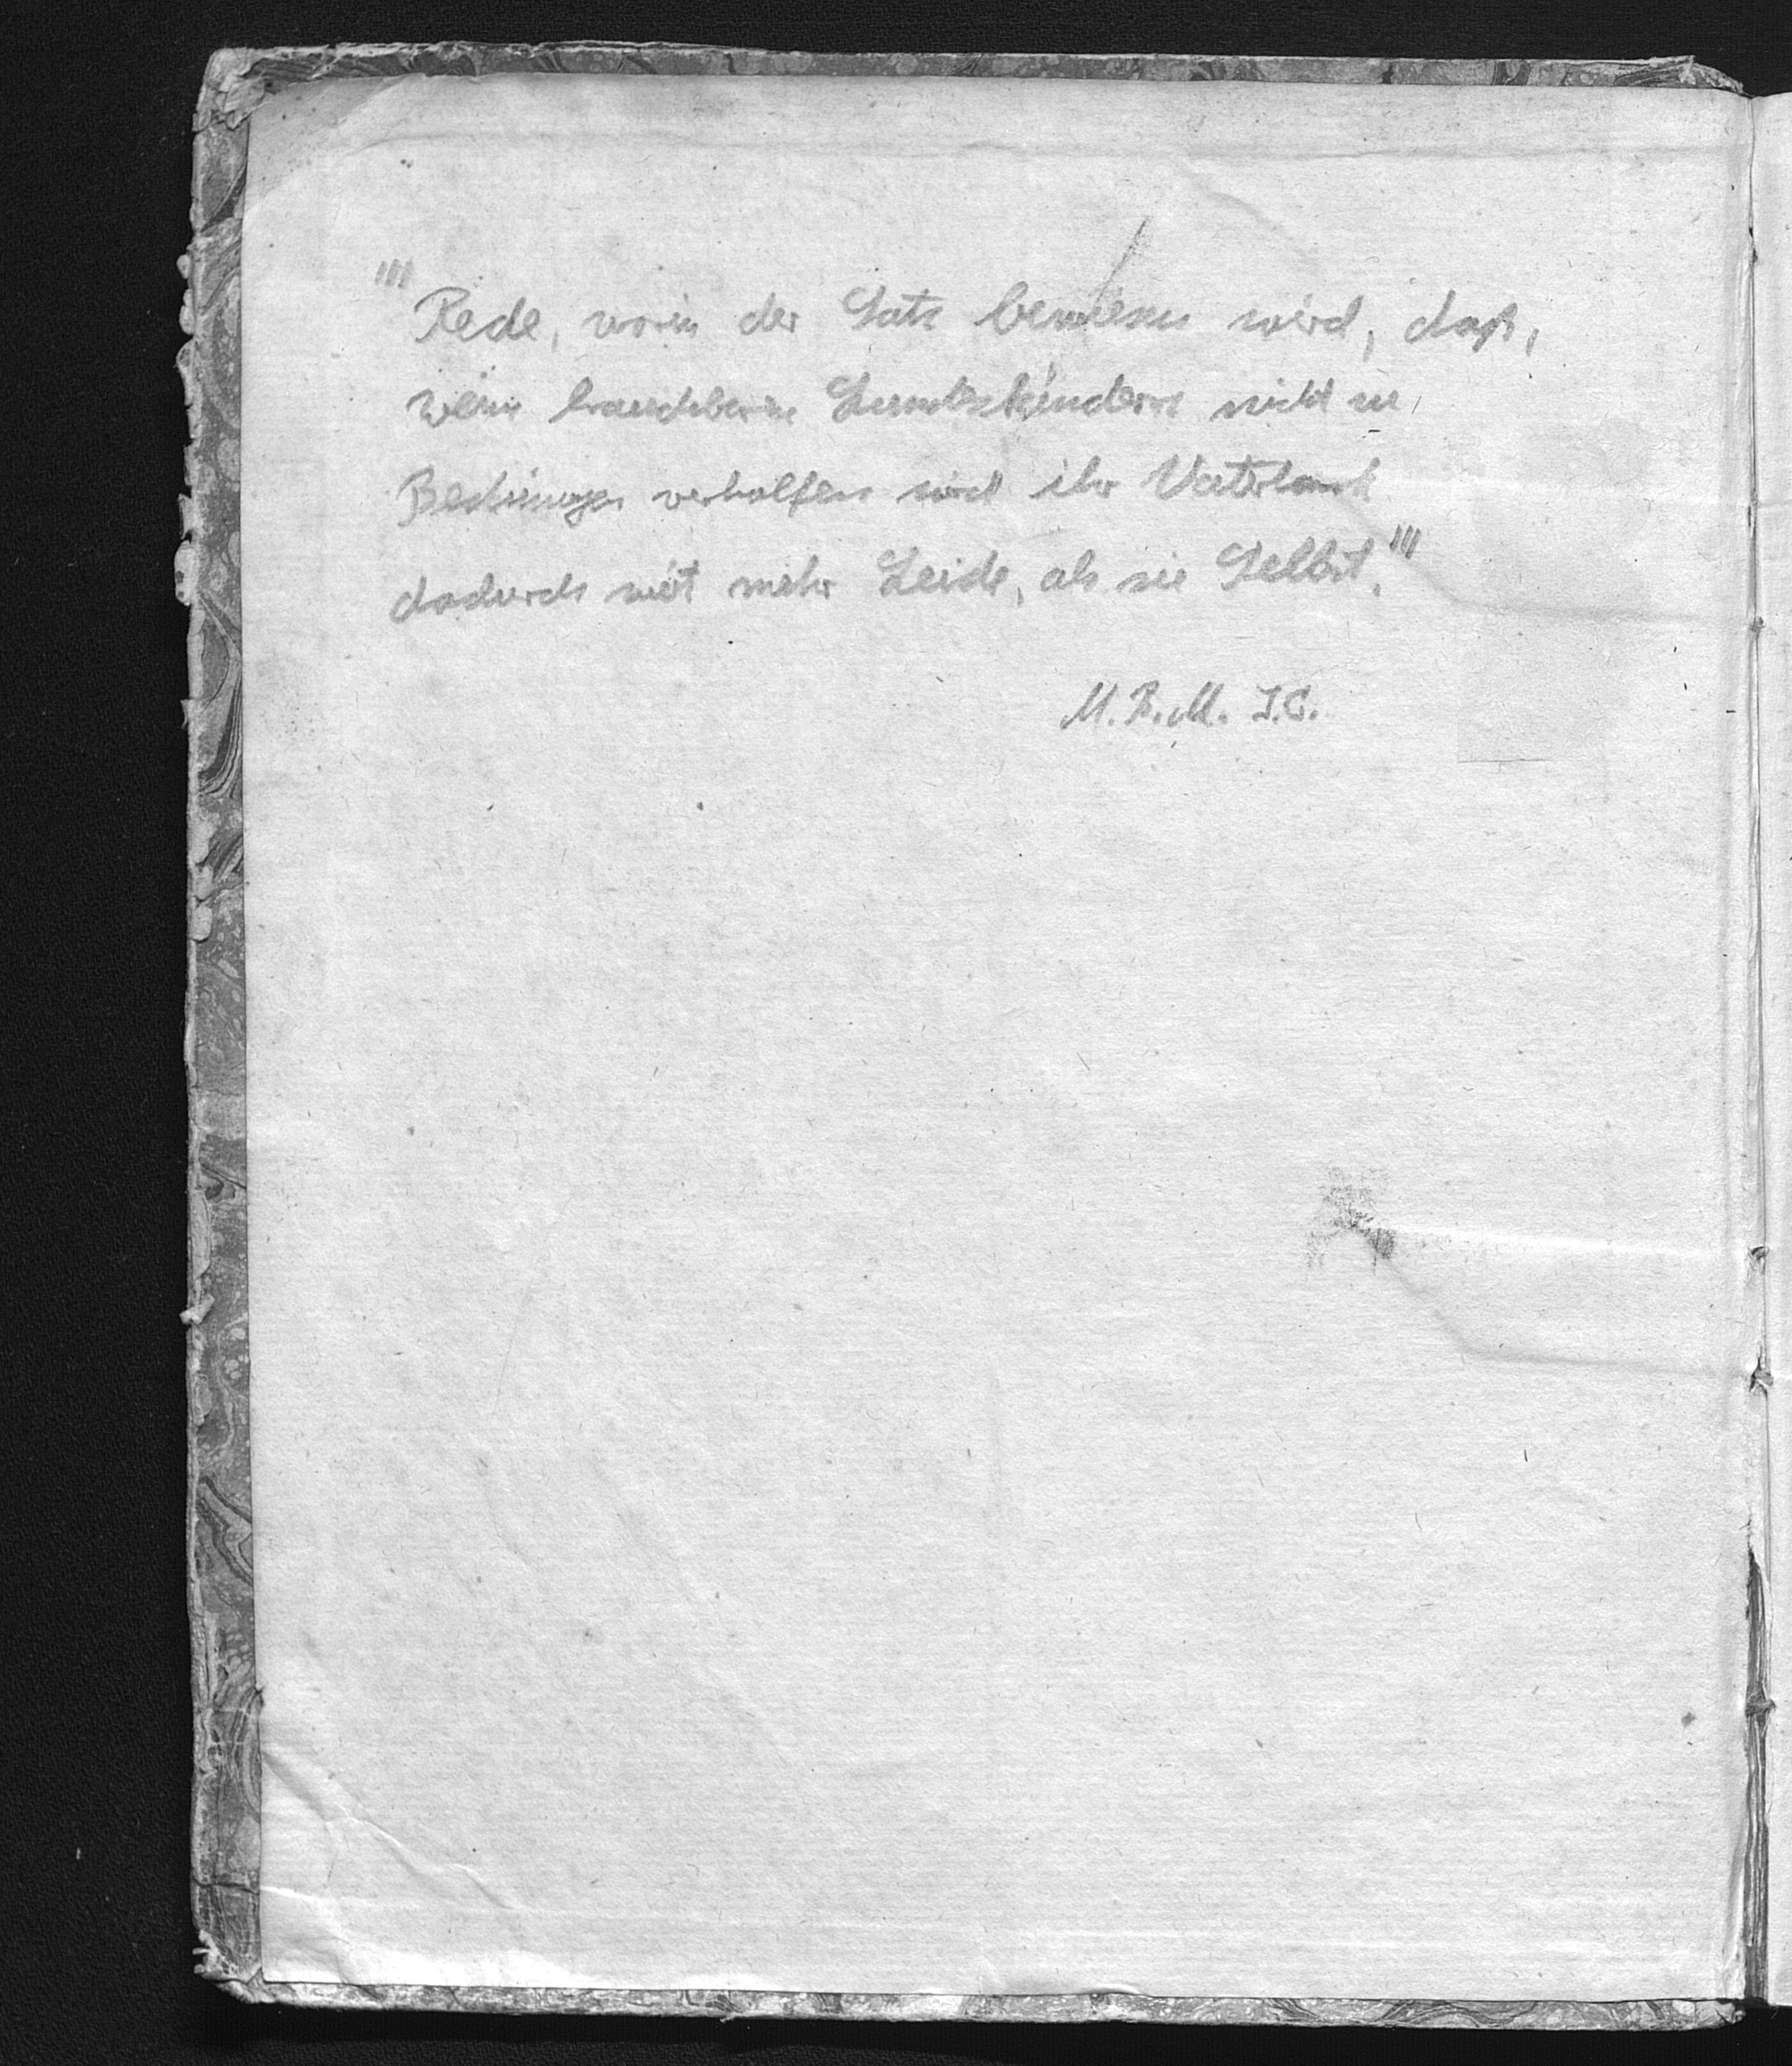 "' Rede, worin der Satz bewiesen wird, daß,
wenn brauchbaren Landeskindern nicht zu
verholfen wird ihr Vaterland
dadurch weit mehr Leide, als sie Selbst. "'
M.R.M. I.C.